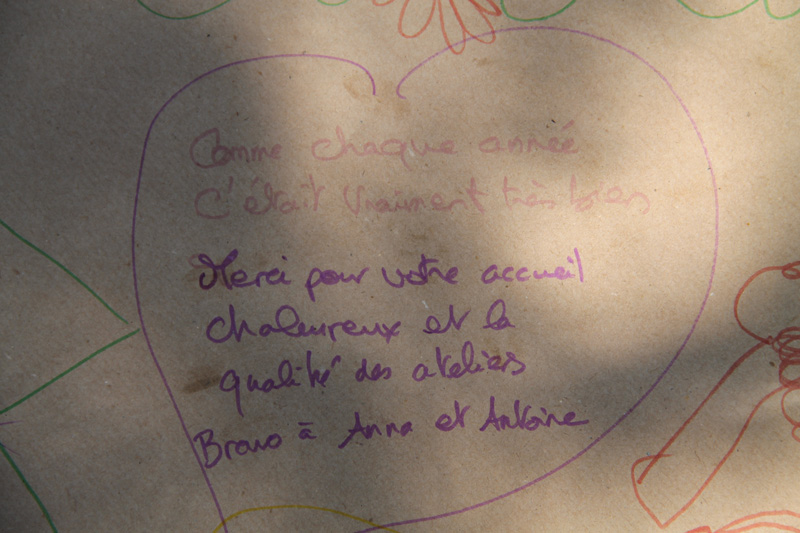 Comme chaque année
C'était vraiment très bien
Merci pour votre accueil
chaleureux et la
qualité des ateliers
Bravo à Anna et Antoine